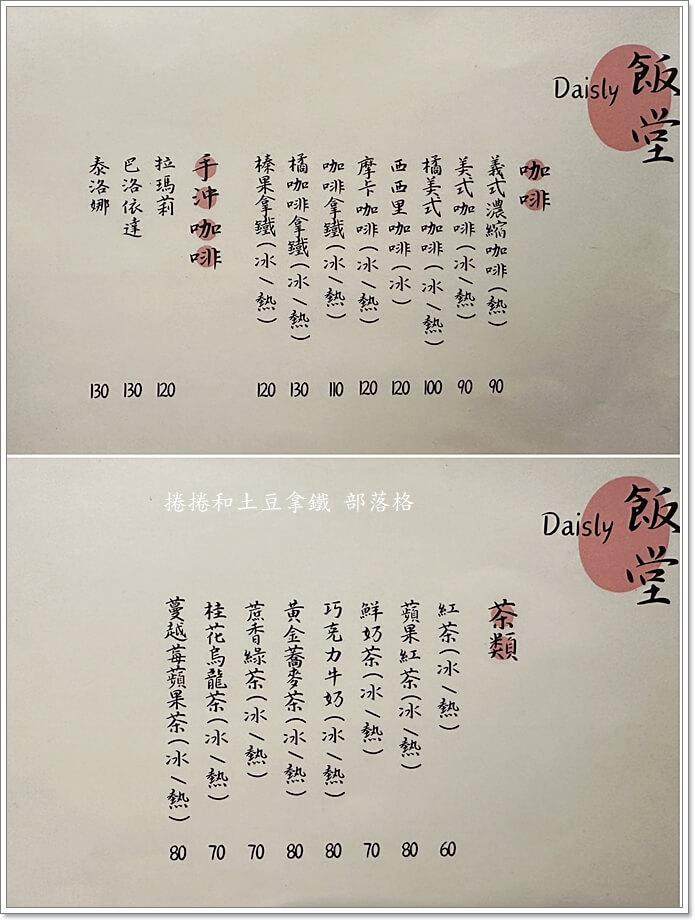 Daisly 飯堂
咖啡
義式濃縮咖啡(熱) 90
美式咖啡(冰/熱) 90
橘美式咖啡(冰/熱) 100
西西里咖啡(冰) 120
摩卡咖啡(冰/熱) 120
咖啡拿鐵(冰/熱) 110
橘咖啡拿鐵(冰/熱) 130
榛果拿鐵(冰/熱) 120
手沖咖啡
拉瑪莉 120
巴洛依達 130
泰洛娜 130
捲捲和土豆拿鐵 部落格
Daisly 飯堂
茶類
紅茶(冰/熱) 60
蘋果紅茶(冰/熱) 80
鮮奶茶(冰/熱) 70
巧克力牛奶(冰/熱) 80
黃金蕎麥茶(冰/熱) 80
蔗香綠茶(冰/熱) 70
桂花烏龍茶(冰/熱) 70
蔓越莓蘋果茶(冰/熱) 80